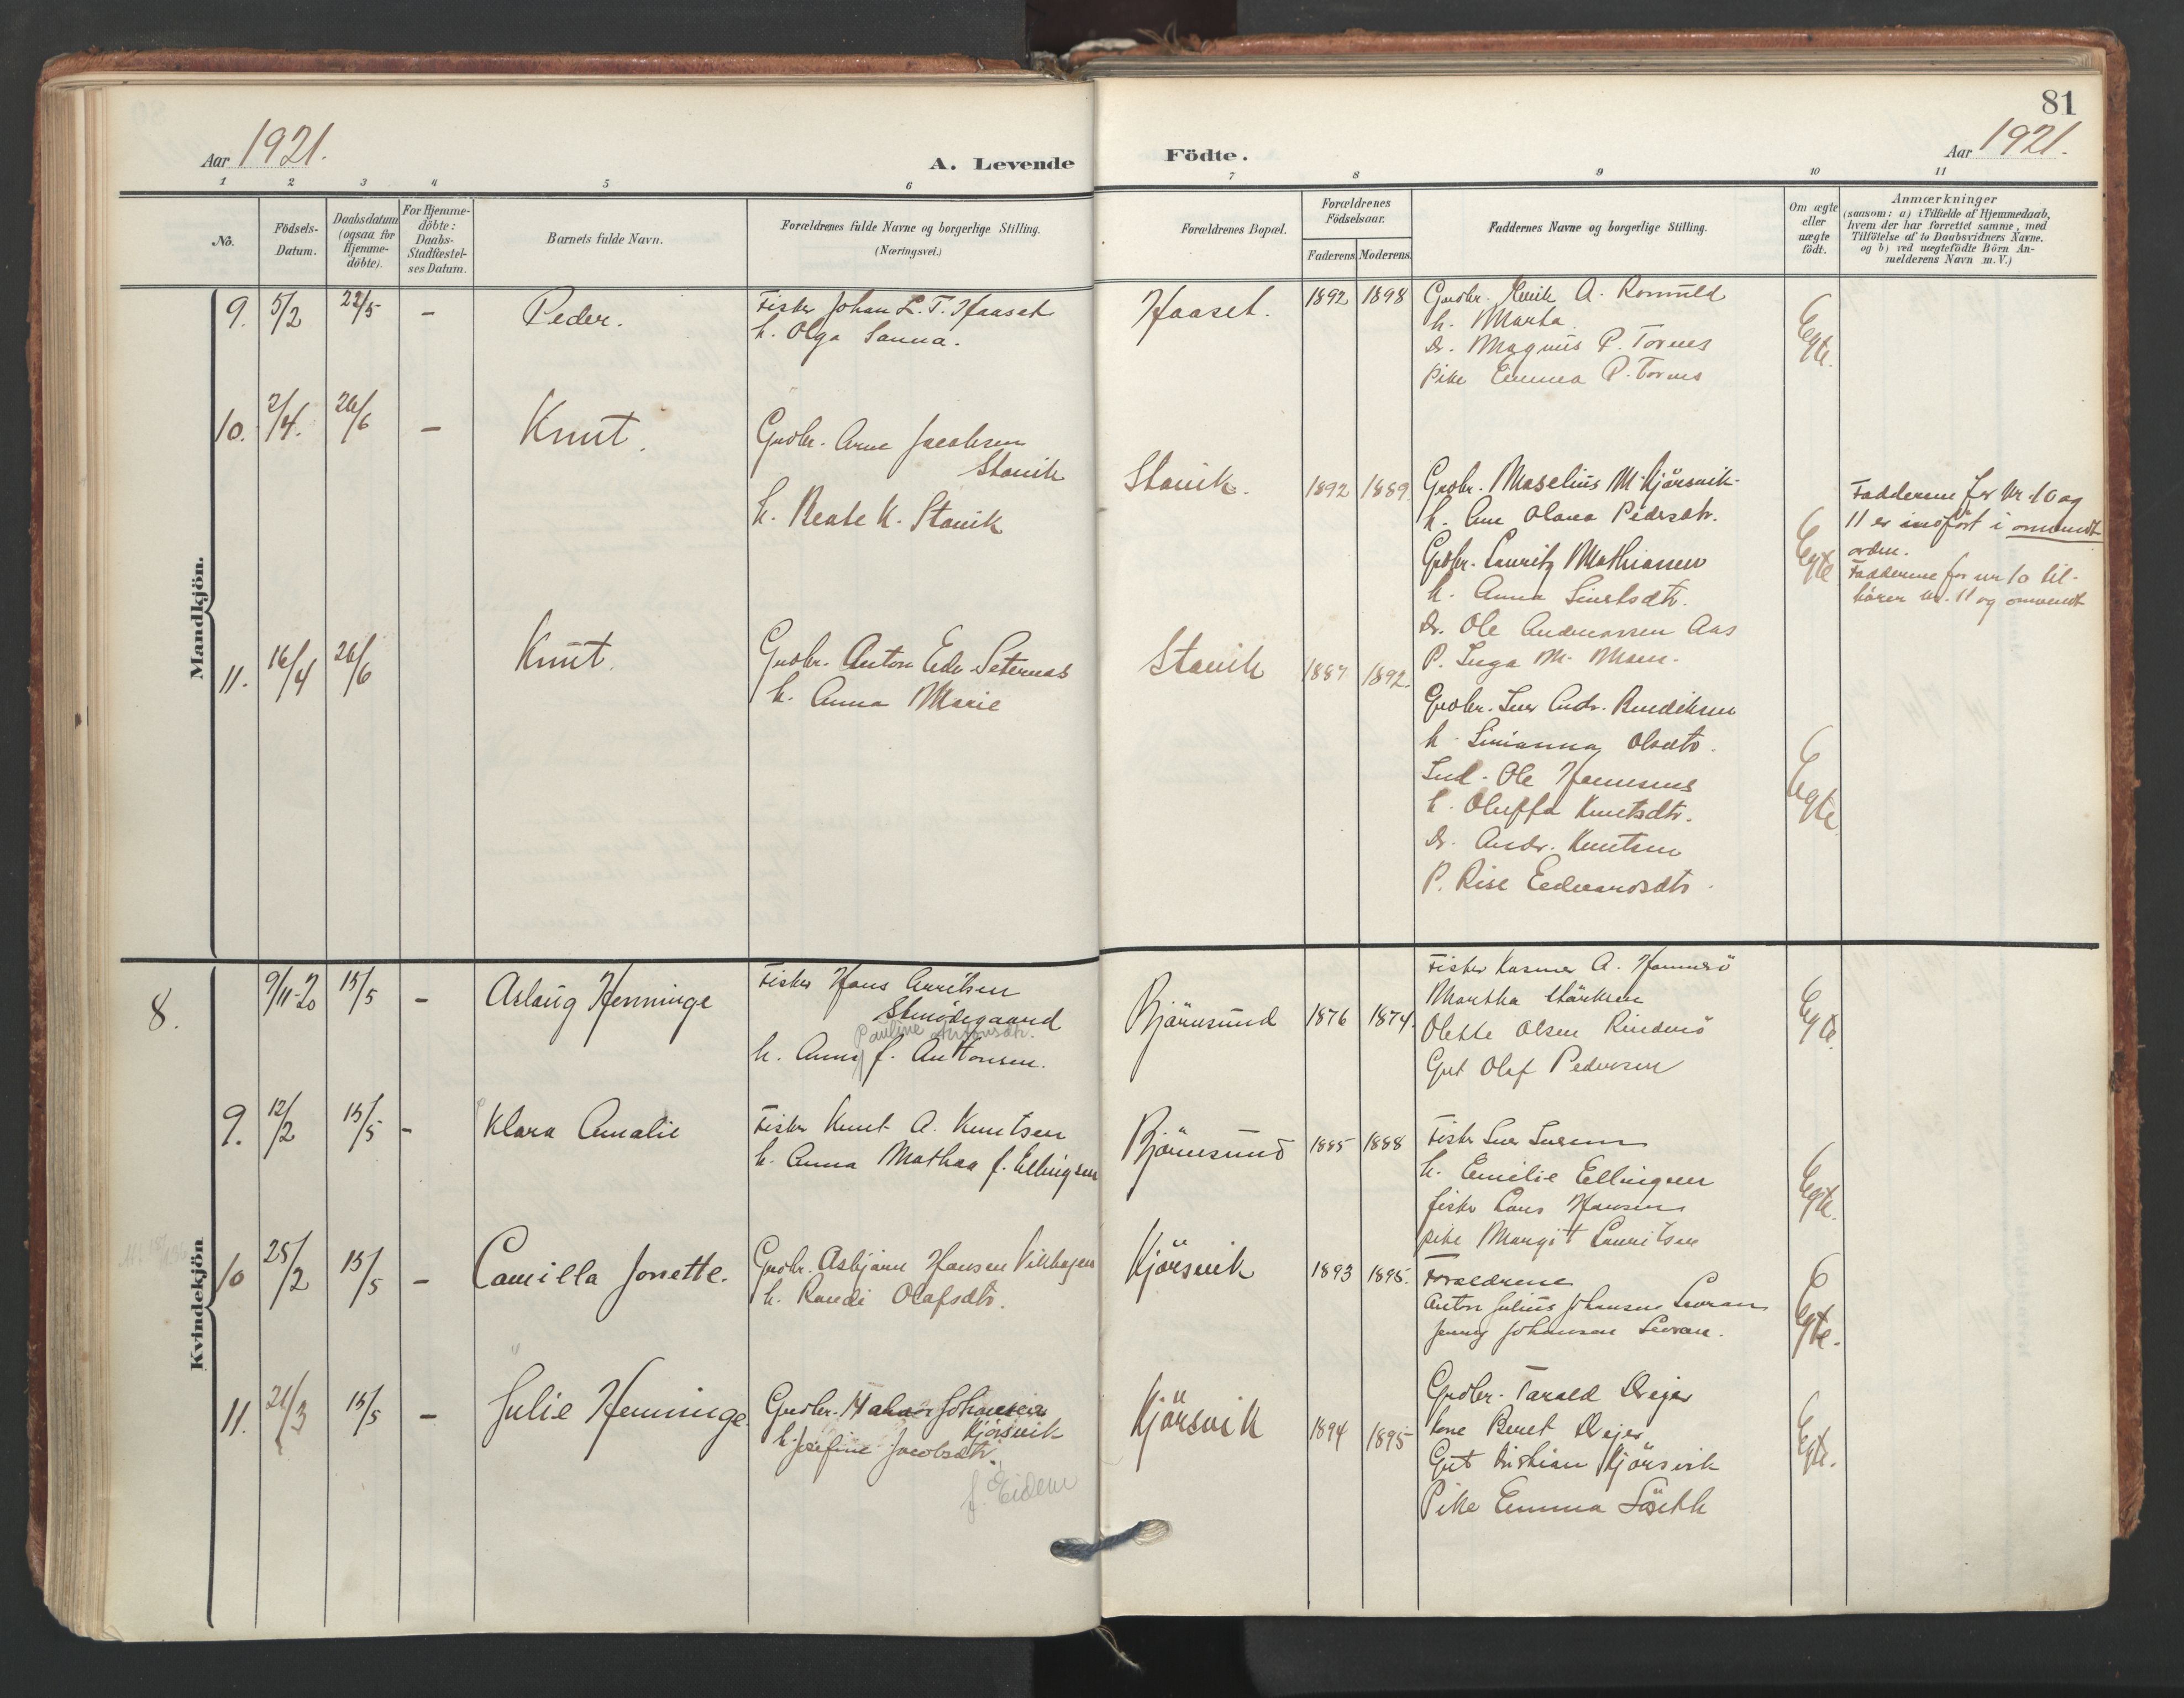 81
Aar 1921.
A. Levende
Födte.
Aar 1921.
1 2 3 4 5 6 7 8 9 10 11
No.
Födsels-
Datum.
Daabsdatum
(ogsaa för
Hjemme-
döbte).
For Hjemme-
döbte:
Daabs-
Stadfæstel-
ses Datum.
Barnets fulde Navn.
Forældrenes fulde Navne og borgerlige Stilling.
(Næringsvei.)
Forældrenes Bopæl.
Forældrenes
Födselsaar.
Faderens
Moderens.
Faddernes Navne og borgerlige Stilling.
Om ægte
eller
uægte
födt.
Anmærkninger
(saasom: a) i Tilfælde af Hjemmedaab,
hvem der har forrettet samme, med
Tilföielse af to Daabsvidners Navne.
og b) ved uægtefödte Börn An-
melderens Navn m. V.)
Mandkjön.
9. 5/2 22/5 – Peder.
Fisker Johan L. T. Haaset
h. Olga Sanna.
Haaset.
1892 1898
Gaardbr. A.
h. Marta
Dr. Magnus P. Tornes
Pike Emma P. Tornes
Egte.
10. 2/4. 26/6 – Knut.
Gaardbr. Arne Jacobsen
Stavik
h. Beate K. Stavik
Stavik.
1892 1889.
Gaardbr. Maselius M. Kjörsvik
h. Ane Olava Pedersdtr.
Gaardbr. Lauritz Mathiassen
h. Anna Sivertsdtr.
Dr. Ole Andreassen Aas
P. Inga M.
Egte
Fadderene for Nr. 10 og
11 er indfört i omvendt
orden.
Fadderene for nr 10 til-
hörer Nr. 11 og omvendt
11. 16/4 26/6 Knut.
Gaardbr. Anton Edv. Seternes
h. Anna Marie
Stavik
1887 1892.
Gaardbr. Iver Andr. Bendiksen
h. Olsdtr.
Ind. Ole Hannesnes
h. Oluffa Knutsdtr.
Dr. Andr. Knutsen
P. Edvardsdtr.
Egte
Kvindekjön
8. 9/11-20 15/5 – Aslaug Henninge
Fisker Hans
Pauline Antonsdtr.
h. Anna f. Anthonsen.
Björnsund
1876 1874.
Fisker Kasmer A.
Martha
Olette Olsen
Gut Olaf Pedersen
Egte.
9. 12/2 15/5 – Klara Amalie
Fisker Knut A. Knutsen
h. Anna Mathea f. Ellingsen
Björnsund
1885 1888
Fisker Iver Iversen
h. Emilie Ellingsen
fisker Lars Hansen
pike Margit Lauritsen
Egte.
10 25/2 15/5 – Camilla Jonette.
Gaardbr. Asbjörn Hansen Vikhagen
h. Randi Olafsdtr.
Kjörsvik
1893 1895.
Forældrene
Anton Julius Johansen
Jenny Johansen
Egte.
11. 21/3 15/5 – Julie Henninge.
Gaardbr. Johansen
Kjörsvik
h. Josefine Jacobsdtr.
f. Eidem
Kjörsvik
1894 1895
Gaardbr. Tarald
kone Beret
Gut Kristian Kjörsvik
Pike Emma
Egte.